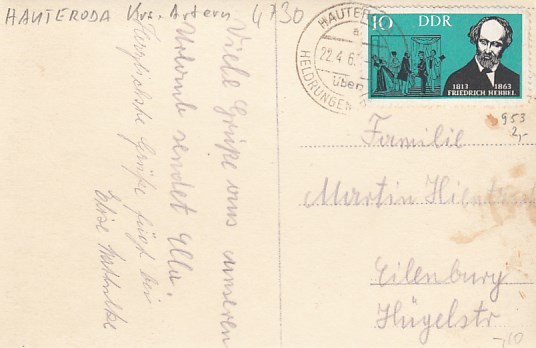 HAUTERODA Krs. Artern 4730
Viele Grüße aus unserem
Urlaub sendet Ella.
Herzlichste Grüße fügt bei
Elise
HAUTER
a
22.4.6
über
HELDRUNGEN
10 DDR
1813 1863
FRIEDRICH HEBBEL
953
2,-
Familie
Martin
Eilenburg
Hügelstr
-,10